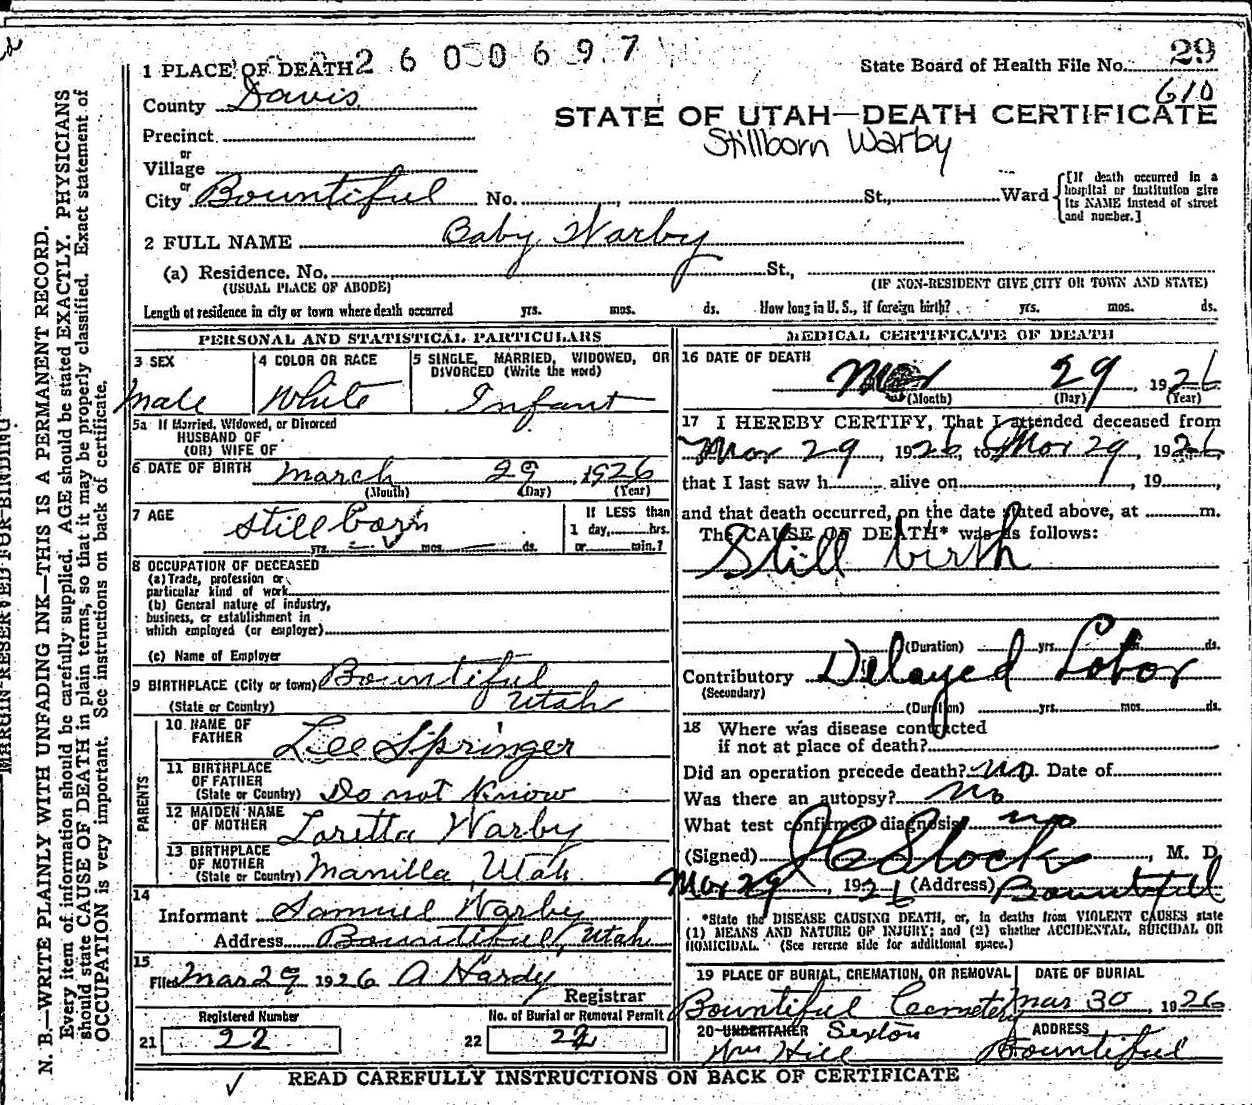 2 6 0 0 6 9 7
29
1 PLACE OF DEATH
State Board of Health File No.
610
County Davis
STATE OF UTAH—DEATH CERTIFICATE
Stillborn Warby
Precinct
or
Village
or
City Bountiful No. St., Ward
[If death occurred in a
hospital or institution give
its NAME instead of street
and number.]
2 FULL NAME Baby Warby
(a) Residence. No. St.,
(USUAL PLACE OF ABODE) (IF NON-RESIDENT GIVE CITY OR TOWN AND STATE)
Length of residence in city or town where death occurred yrs. mos. ds. How long in U. S., if foreign birth? yrs. mos. ds.
PERSONAL AND STATISTICAL PARTICULARS
3 SEX
Male
4 COLOR OR RACE
White
5 SINGLE, MARRIED, WIDOWED, OR
DIVORCED (Write the word)
Infant
5a If Married, Widowed, or Divorced
HUSBAND OF
(OR) WIFE OF
6 DATE OF BIRTH March 29, 1926
(Month) (Day) (Year)
7 AGE
Still born
yrs. mos. ds.
If LESS than
1 day, hrs.
or min.?
8 OCCUPATION OF DECEASED
(a) Trade, profession or
particular kind of work
(b) General nature of industry,
business, or establishment in
which employed (or employer)
(c) Name of Employer
9 BIRTHPLACE (City or town) Bountiful
(State or Country) Utah
PARENTS
10 NAME OF
FATHER Lee Springer
11 BIRTHPLACE
OF FATHER
(State or Country) Do not Know
12 MAIDEN NAME
OF MOTHER Loretta Warby
13 BIRTHPLACE
OF MOTHER
(State or Country) Manilla, Utah
14
Informant Samuel Warby
Address Bountiful, Utah
15
Filed Mar 29 1926 A Hardy
Registrar
Registered Number
21 22
No. of Burial or Removal Permit
22 22
MEDICAL CERTIFICATE OF DEATH
16 DATE OF DEATH
Mar 29, 1926
(Month) (Day) (Year)
17 I HEREBY CERTIFY, That I attended deceased from
Mar 29, 1926, to Mar 29, 1926
that I last saw h alive on , 19 ,
and that death occurred, on the date stated above, at m.
The CAUSE OF DEATH* was as follows:
Still birth
(Duration) yrs. ds.
Contributory Delayed Labor
(Secondary)
(Duration) yrs. mos. ds.
18 Where was disease contracted
if not at place of death?
Did an operation precede death? no Date of
Was there an autopsy? no
What test confirmed diagnosis no
(Signed) , M. D
Mar 29, 1926 (Address) Bountiful
*State the DISEASE CAUSING DEATH, or, in deaths from VIOLENT CAUSES state
(1) MEANS AND NATURE OF INJURY; and (2) whether ACCIDENTAL, SUICIDAL OR
HOMICIDAL. (See reverse side for additional space.)
19 PLACE OF BURIAL, CREMATION, OR REMOVAL
Bountiful Cemetery
DATE OF BURIAL
Mar 30, 1926
20 UNDERTAKER Sexton
Wm Hill
ADDRESS
Bountiful
READ CAREFULLY INSTRUCTIONS ON BACK OF CERTIFICATE
MARGIN RESERVED FOR BINDING
N. B.—WRITE PLAINLY WITH UNFADING INK—THIS IS A PERMANENT RECORD.
Every item of information should be carefully supplied. AGE should be stated EXACTLY. PHYSICIANS
should state CAUSE OF DEATH in plain terms, so that it may be properly classified. Exact statement of
OCCUPATION is very important. See instructions on back of certificate.